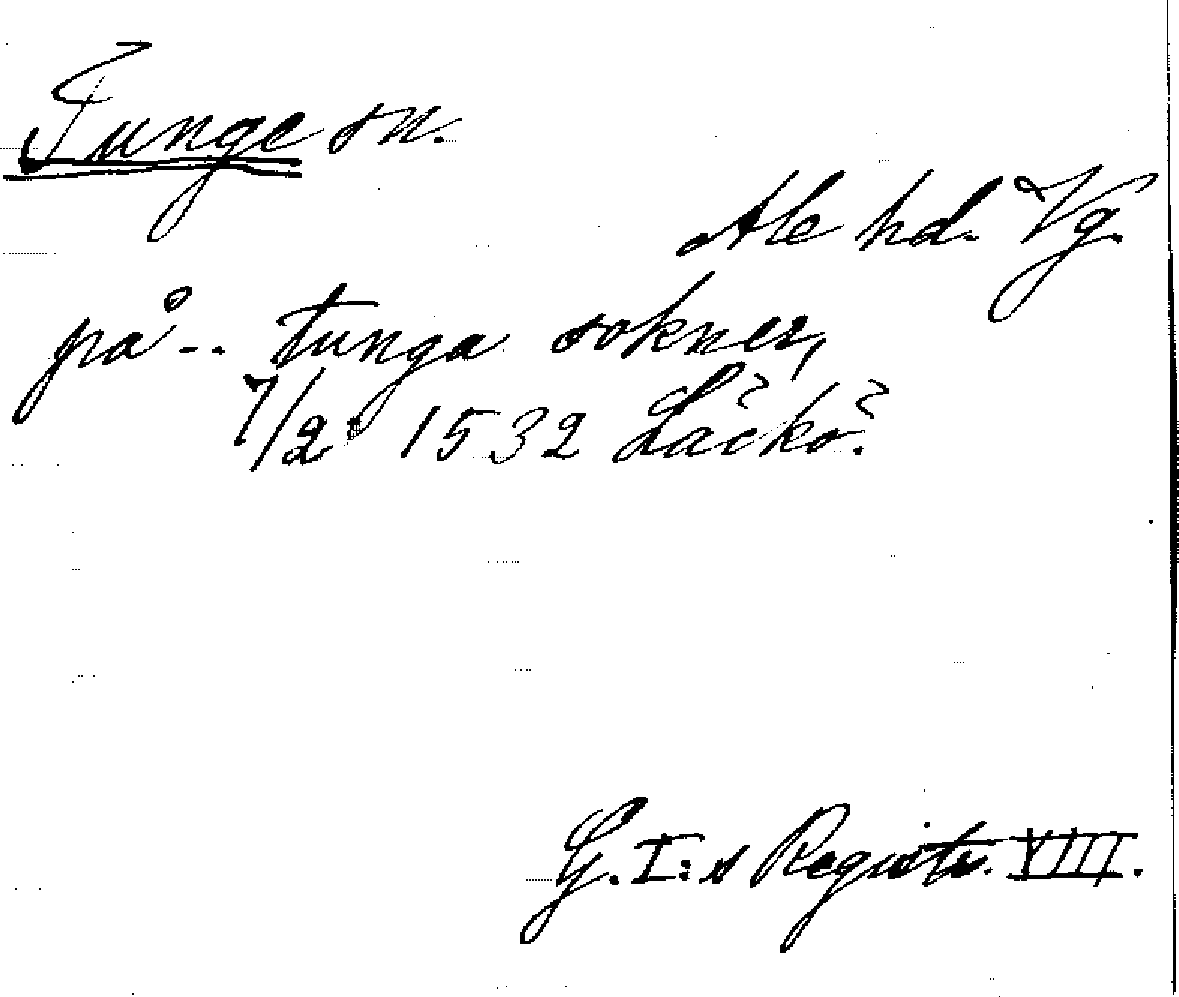 Tunge sn.
Ale hd. Vg.
på -- tunga sokner,
7/2 1532 Läckö.
G. I:s Registr. VIII.